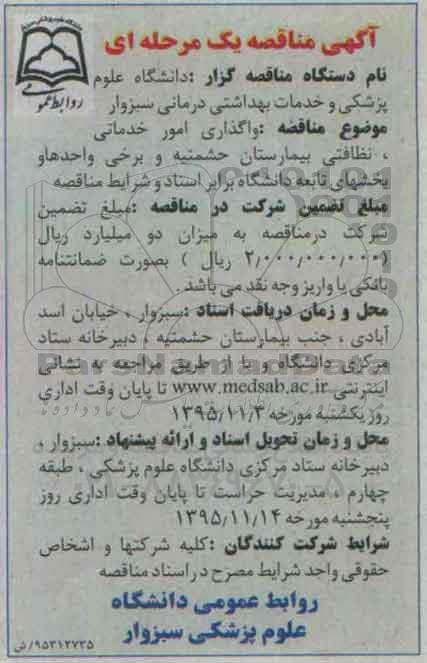 آگهی مناقصه یک مرحله ای
روابط عمومی
نام دستگاه مناقصه گزار :دانشگاه علوم
پزشکی و خدمات بهداشتی درمانی سبزوار
موضوع مناقصه :واگذاری امور خدماتی
، نظافتی بیمارستان حشمتیه و برخی واحدهاو
بخشهای تابعه دانشگاه برابر اسناد و شرایط مناقصه
مبلغ تضمین شرکت در مناقصه :مبلغ تضمین
شرکت درمناقصه به میزان دو میلیارد ریال
(۲٫۰۰۰٫۰۰۰٫۰۰۰ ریال ) بصورت ضمانتنامه
بانکی یا واریز وجه نقد می باشد .
محل و زمان دریافت اسناد :سبزوار ، خیابان اسد
آبادی ، جنب بیمارستان حشمتیه ، دبیرخانه ستاد
مرکزی دانشگاه و یا از طریق مراجعه به نشانی
اینترنتی www.medsab.ac.ir تا پایان وقت اداری
روز یکشنبه مورخه ۱۳۹۵/۱۱/۳
محل و زمان تحویل اسناد و ارائه پیشنهاد :سبزوار ،
دبیرخانه ستاد مرکزی دانشگاه علوم پزشکی ، طبقه
چهارم ، مدیریت حراست تا پایان وقت اداری روز
پنجشنبه مورخه ۱۳۹۵/۱۱/۱۴
شرایط شرکت کنندگان :کلیه شرکتها و اشخاص
حقوقی واجد شرایط مصرح در اسناد مناقصه
روابط عمومی دانشگاه
علوم پزشکی سبزوار
۹۵۳۱۲۷۳۵/ش